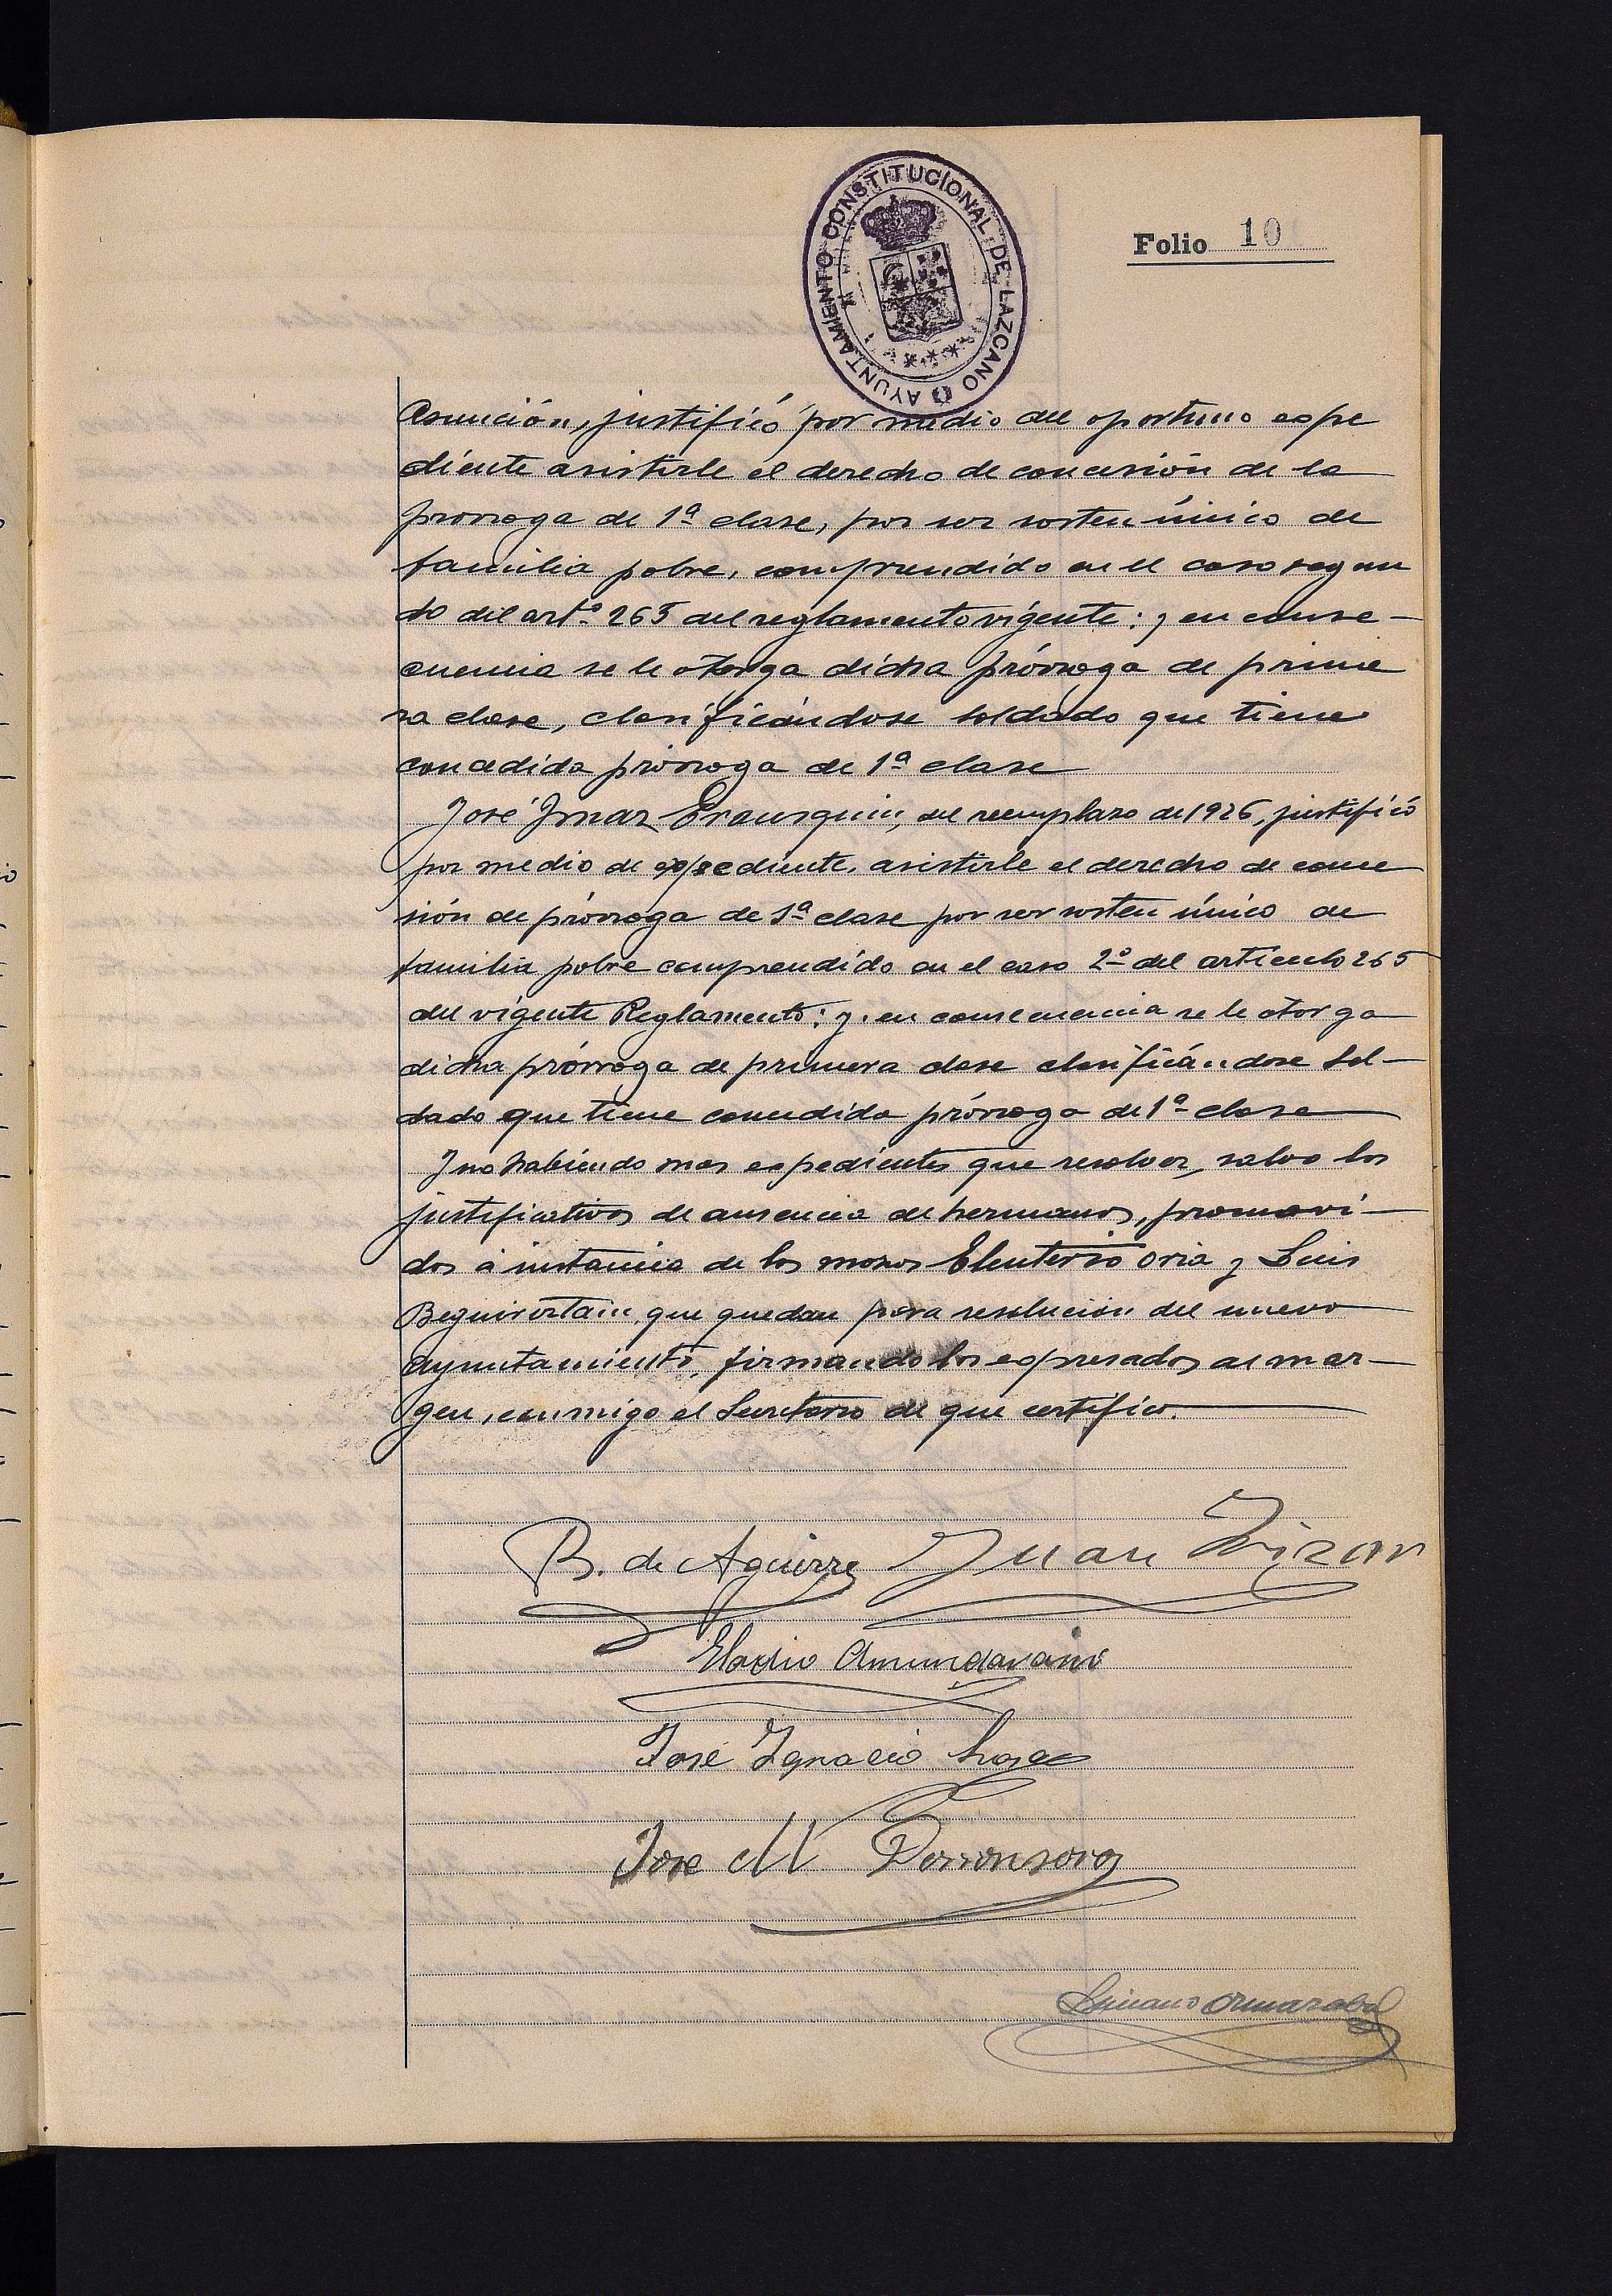 AYUNTAMIENTO CONSTITUCIONAL DE LAZCANO
Folio 10
Asunción, justificó por medio del oportuno espe
diente asistirle el derecho de concesión de la
prorroga de 1ª clase, por ser sosten único de
familia pobre, comprendido en el caso segun
do del artº 265 del reglamento vigente: y en conse-
cuencia se le otorga dicha prórroga de prime
ra clase, clasificándose soldado que tiene
concedida prórroga de 1ª clase
José Imaz Erausquin, del reemplazo de 1926, justificó
por medio de expediente, asistirle el derecho de conce
sión de prórroga de 1ª clase por ser sosten único de
familia pobre comprendido en el caso 2º del artículo 265
del vigente Reglamento: y en consecuencia se le otorga
dicha prórroga de primera clase clasificándose Sol-
dado que tiene concedida prórroga de 1ª clase
Y no habiendo mas espedientes que resolver, salvo los
justificativos de ausencia de hermanos, promovi-
dos á instancia de los mozos Eleuterio Oria y Luis
Beguiristain, que quedan para resolución del nuevo
ayuntamiento, firmando los espresados al mar-
gen, conmigo el Secretario de que certifico.
B. de Aguirre Juan
Eladio Amundarain
José Ignacio
José M Dorronsoro
Ormazabal